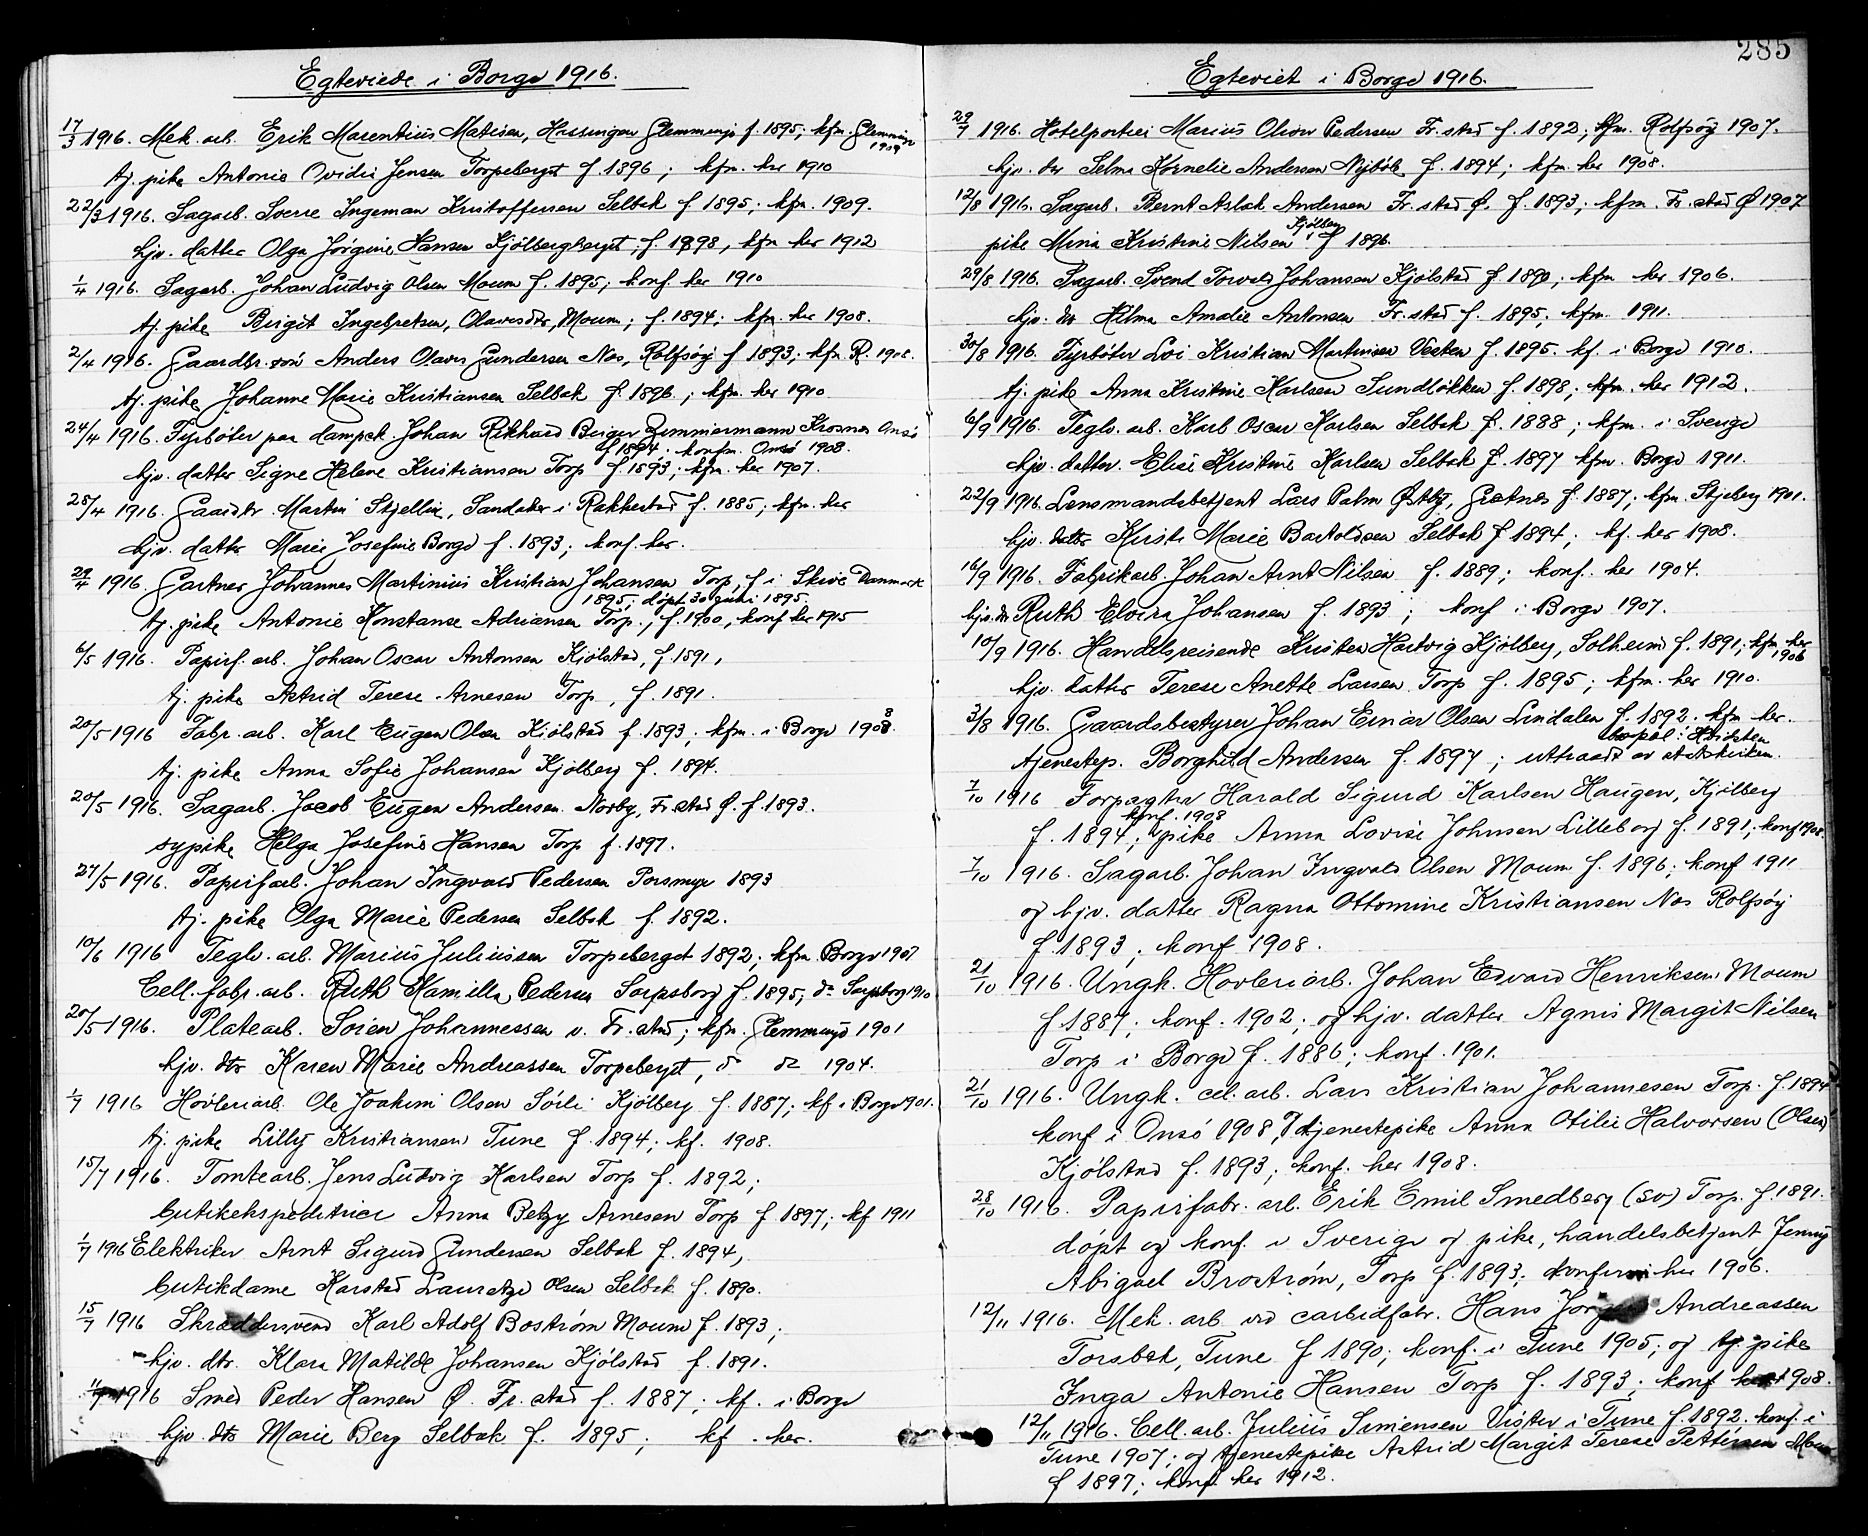 Egteviede i Borge 1916.
17/3 1916. Mek. arb. Erik Marentius Matisen, Hassingen Glemminge f. 1895; kfm. Glemminge
1909
tj. pike Antonie Ovidia Jensen Torpeberget f. 1896; kfm. her 1910
22/3 1916. Sagarb. Sverre Ingeman Kristoffersen Selbak f. 1895; kfm. 1909.
hjv. datter Olga Jørgine Hansen Kjölbergberget, f. 1898, kfm her 1912
1/4 1916. Sagarb. Johan Ludvig Olsen Moum f. 1895; konf. her 1910
tj. pike Birgit Ingebretsen, Olavesdtr, Moum; f. 1894; kfm. her 1908.
2/4 1916. Gaardbr. sön Anders Olaves Gundersen Nes, Rolfsöy f 1893; kfm R. 1908.
tj. pike Johanne Marie Kristiansen Selbak f. 1896; kfm. her 1910
24/4 1916. Fyrböter paa dampsk. Johan Rikhard Birger Zimmermann Krosnes Onsö
f 1894; konfm. Onsö 1908.
hjv. datter Signe Helene Kristiansen Torp f 1893; kfm. her 1907.
25/4 1916. Gaardbr. Martin Skjellin, Sandaker i Rakkestad f. 1885; kfm. her
hjv. datter Marie Josefine Borge f. 1893; konf. her.
29/4 1916. Gartner Johannes Martinius Kristian Johansen Torp, f i Skive Danmark
1895; döpt 30 juni 1895.
tj. pike Antonie Konstanse Adriansen Torp.; f. 1900, konf her 1915
6/5 1916. Papirf. arb. Johan Oscar Antonsen Kjölstad, f. 1891,
tj. pike Astrid Terese Arnesen Torp, f. 1891.
20/5 1916 Fabr. arb. Karl Eugen Olsen Kjölstad f. 1893; kfm. i Borge 1908.
tj. pike Anna Sofie Johansen Kjölberg f. 1894.
20/5 1916. Sagarb. Jacob Eugen Andersen Norby, Fr.stad Ø. f. 1893.
sypike Helga Josefine Hansen Torp f. 1897.
27/5 1916. Papirfarb. Johan Ingvald Pedersen Porsmyr 1893
tj. pike Olga Marie Pedersen Selbak f. 1892.
10/6 1916 Teglv. arb. Marius Juliussen Torpeberget 1892; kfm. Borge 1907
Cell. fabr. arb. Ruth Kamilla Pedersen Sarpsborg f. 1895; do Sarpsborg 1910
20/5 1916. Platearb. Sören Johannessen v. Fr. stad; kfm. Glemminge 1901
hjv. dtr Karen Marie Andreassen Torpeberget, do do 1904.
1/7 1916 Hövleriarb. Ole Joakim Olsen Sörli Kjölberg f. 1887; kf. i Borge 1901.
tj. pike Lilly Kristiansen Tune f 1894; kf. 1908.
15/7 1916. Tomtearb. Jens Ludvig Karlsen Torp f. 1892;
butikekspeditrice Anna Betzy Arnesen Torp f 1897; kf 1911
1/7 1916 Elektriker Arnt Sigurd Gundersen Selbak f. 1894,
butikdame Karstad Lauretze Olsen Selbak f. 1890.
15/7 1916 Skræddersvend Karl Adolf Boström Moum f. 1893;
hjv. dtr. Klara Matilde Johansen Kjölstad f. 1891.
1916 Smed Peder Hansen Ø. Fr. stad f. 1887; kf. i Borge
hjv. dtr Marie Berg Selbak f. 1895; kf. her.
285
Egteviet i Borge 1916.
29/7 1916. Hotelportier Marius Oliver Pedersen Fr.stad f. 1892; kfm. Rolfsöy 1907.
hjv. dtr Selma Kornelie Andersen Nyböle f. 1894; kfm. her 1908.
12/8 1916. Sagarb. Bernt Aslak Andersen Fr.stad Ø. f. 1893; kfm. Fr.stad Ø 1907
Kjölberg
pike Mina Kristine Nilsen f 1896.
29/8 1916. Sagarb. Svend Torvald Johansen Kjölstad f. 1890; kfm. her 1906.
hjv. dtr Hilma Amalie Antonsen Fr.stad f. 1895; kfm. 1911.
30/8 1916. Fyrböter Lvi Kristian Martinsen Vesten f. 1895. kf. i Borge 1910.
tj. pike Anna Kristine Karlsen Sundlökken f. 1898; kfm. her 1912.
6/9 1916. Teglv. arb. Karl Oscar Karlsen Selbak f. 1888; kfm. i Sverige
hjv. datter Elise Kristine Karlsen Selbak f. 1897 kfm. Borge 1911.
22/9 1916. Lensmandsbetjent Lars Palm Østby, Grætnes f. 1887; kfm. Skjeberg 1901.
hjv. datter Kirsti Marie Bartoldsen Selbak f 1894; kf. her 1908.
16/9 1916. Fabrikarb. Johan Arnt Nilsen f. 1889; konf. her 1904.
hjv. dtr Ruth Elvira Johansen f. 1893; konf i Borge 1907.
10/9 1916. Handelsreisende Kristen Hartvig Kjölberg, Solheim f. 1891; kfm her
1906
hjv. datter Terese Anette Larsen Torp f. 1895; kfm. her 1910.
3/8 1916. Gaardsbestyrer Johan Einar Olsen Lindalen f. 1892. kfm her.
bopæl: Hvidsten
tjenestep. Borghild Andersen f. 1897; uttraadt av statskirken.
7/10 1916 Forpagter Harald Sigurd Karlsen Haugen, Kjölberg
konf. 1908
f. 1894; pike Anna Lovise Johnsen Lilleborg f. 1891; konf 1908.
7/10 1916. Sagarb. Johan Ingvald Olsen Moum f. 1896; konf 1911
og hjv. datter Ragna Ottomine Kristiansen Nes Rolfsöy
f. 1893; konf 1908.
21/10 1916. Ungk. Hövleriarb. Johan Edvard Henriksen Moum
f 1887; konf. 1902; og hjv. datter Agnis Margit Nilsen
Torp i Borge f. 1886; konf. 1901.
21/10 1916. Ungk. cel. arb. Lars Kristian Johannesen Torp. f. 1894
konf i Onsö 1908, og tjenestepike Anna Otilie Halvorsen (Olsen)
Kjölstad f. 1893; konf. her 1908.
28/10 1916. Papirfabr. arb. Erik Emil Smedberg (sv) Torp. f. 1891.
döpt og konf. i Sverige og pike, handelsbetjent Jenny
Abigael Broström, Torp f. 1893; konf her 1906.
12/11 1916. Mek. arb. ved carbidfabr. Hans Jörgen Andreassen
Torsbek, Tune f 1890; konf. i Tune 1905; og tj. pike
Inga Antonie Hansen Torp f. 1893; konf her 1908.
12/11 1916. Cell. arb. Julius Simensen Vister i Tune f. 1892. konf. i
Tune 1907; og tjenestepike Astrid Margit Terese Pettersen Moum
f 1897; konf. her 1912.